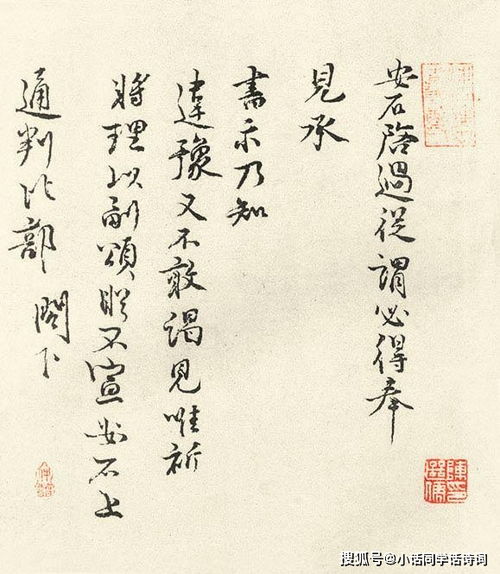 安石啓過從謂必得奉
見承
書示乃知
違豫又不敢謁見唯祈
將理以副頌不宣安石上
通判比部 閣下
搜狐号@小话同学话诗词